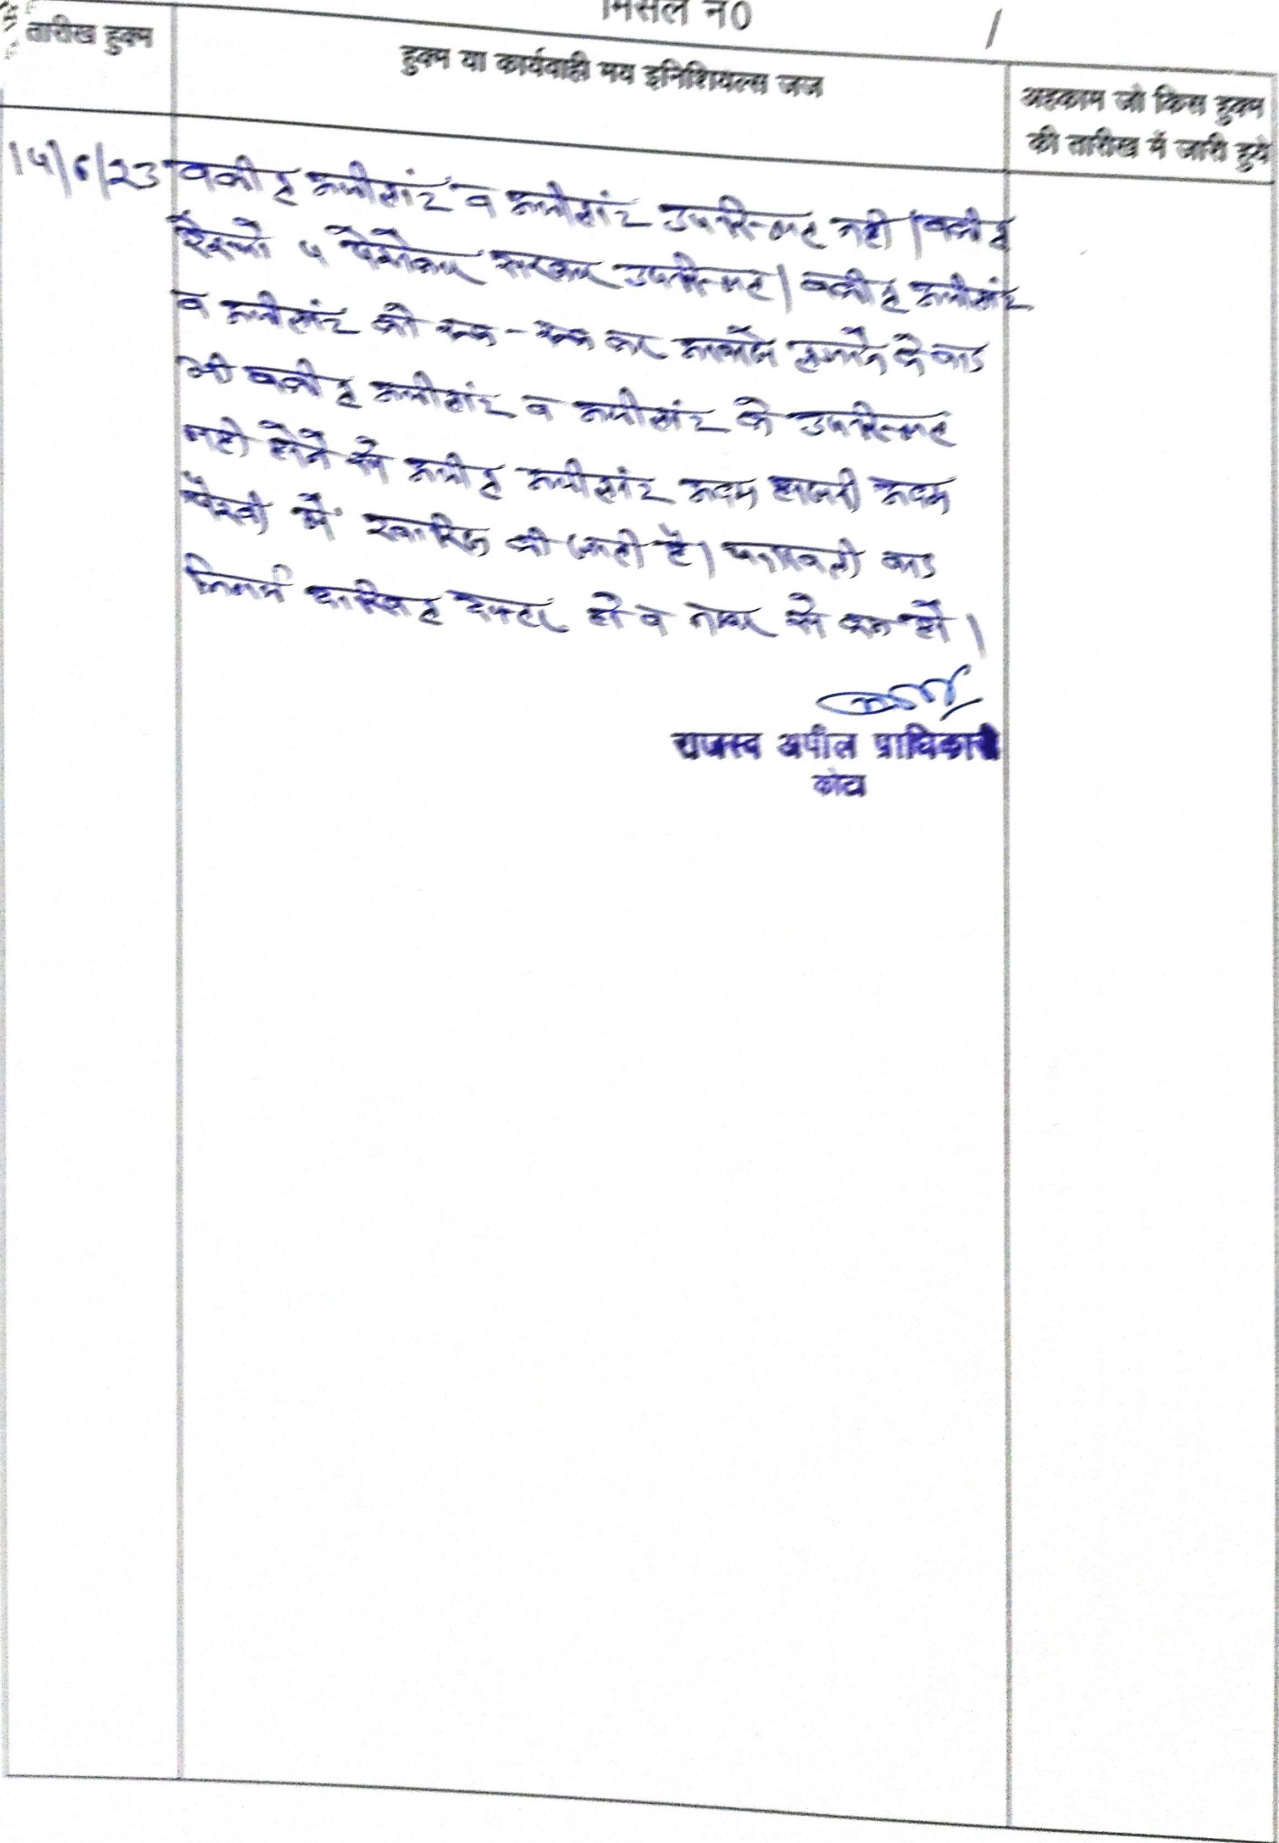 मिसल न0 /
तारीख हुक्म
हुक्म या कार्यवाही मय इनिशियल्स जज
अहकाम जो किस हुक्म
की तारीख में जारी हुये
14/6/23 वकील अपीलांट व अपीलांट उपस्थित नही। वकील
रेस्पो व पेरोकार सरकार उपस्थित। वकील अपीलांट
व अपीलांट को रूक-रूक कर आवाजे लगाने के बाद
भी वकील अपीलांट व अपीलांट के उपस्थित
नही होने से अपील अपीलांट अदम हाजरी अदम
पैरवी में खारिज की जाती है। पत्रावली बाद
दाखिल दफ्टर हो व नम्बर से कम हो।
राजस्व अपील प्राधिकारी
कोटा